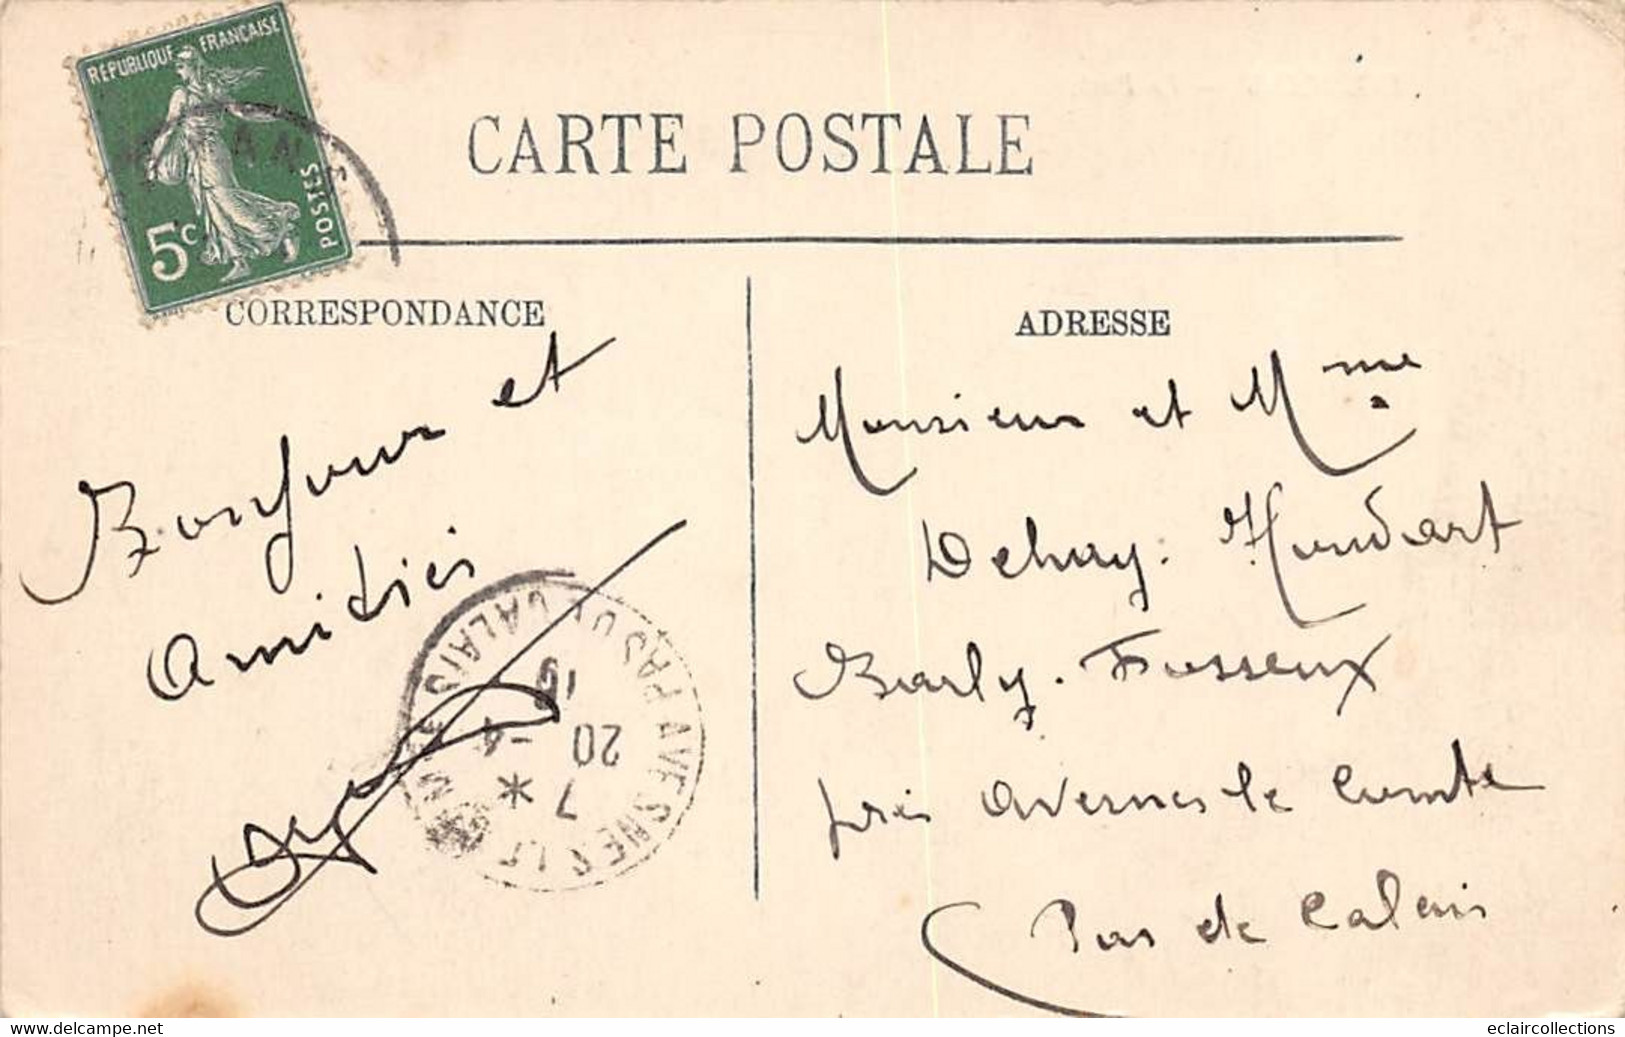 RÉPUBLIQUE FRANÇAISE
POSTES
5c
CARTE POSTALE
CORRESPONDANCE
Bonjour et
Amitiés
PAS DE CALAIS
AVESNES LE
7 *
20 - 4
19
ADRESSE
Monsieur et Mme
Dehay. Houdart
Barly. Fosseux
près Avesnes le Comte
Pas de Calais
www.delcampe.net
eclaircollections